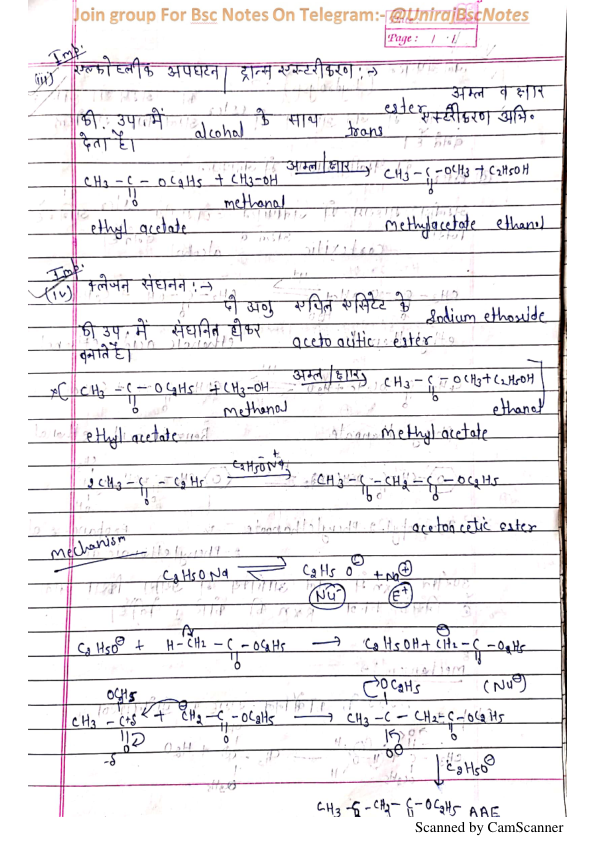 Join group For Bsc Notes On Telegram:- @UnirajBscNotes
Page: 1 · 1
Imp.
(iii) एल्कोहलीक अपघटन / ट्रान्स एस्टरीकरण :→
अम्ल व क्षार
की उप. में alcohal के साथ trans ester एस्टरीकरण अभि॰
देता है।
CH3 - C - OC2H5 + CH3-OH अम्ल/क्षार → CH3 - C - OCH3 + C2H5OH
O methanol O
ethyl acetate methylacetate ethanol
Imp.
(iv) क्लेजन संघनन :→
दो अणु एथिल एसिटेट के Sodium ethoxide
की उप. में संघनित होकर aceto acitic ester
बनाते है।
CH3 - C - OC2H5 + CH3-OH अम्ल/क्षार → CH3 - C - OCH3 + C2H5OH
O methanol O ethanol
ethyl acetate methyl acetate
2CH3 - C - C2H5 C2H5ONa+ → CH3 - C - CH2 - C - OC2H5
O O O
acetoacetic ester
mechanism
C2H5ONa ⇌ C2H5O⊖ + Na⊕
Nu- E+
C2H5O⊖ + H-CH2 - C - OC2H5 → C2H5OH + CH2⊖ - C - O2H5
O O
OC2H5 OC2H5 (Nu⊖)
CH3 - C+δ + CH2⊖ - C - OC2H5 → CH3 - C - CH2 - C - OC2H5
O O O⊖ O
-δ
↓ C2H5O⊖
CH3 - C - CH2 - C - OC2H5 AAE
O
Scanned by CamScanner